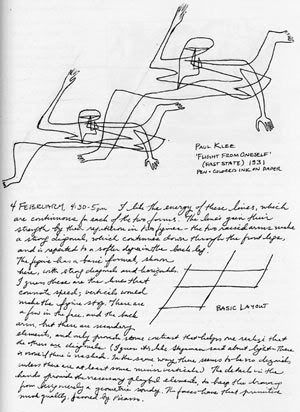 PAUL KLEE
'FLIGHT FROM ONESELF'
(FIRST STATE) 1931
PEN + COLORED INK ON PAPER
4 FEBRUARY, 4:30-5pm I like the energy of these lines, which
are continuous in each of the two forms. The lines gain their
strength by their repetition in two figures - the two raised arms make
a strong diagonal, which continues down through the front legs,
and is repeated to a softer degree in the back leg.
The figure has a basic format, shown
here, with strong diagonals and horizontals.
I guess these are the lines that
connote speed; verticals would
make the figure stop. There are
a few in the face, and the back
arm, but they are secondary
elements, and only provide some contrast that helps one realize that
the others are diagonals.
BASIC LAYOUT
is none if there is no shade. In the same way, there seems to be no diagonals,
unless there are at least some minor verticals. The details in the
hands provide the necessary playful elements, to keep the drawing
from being merely a geometric